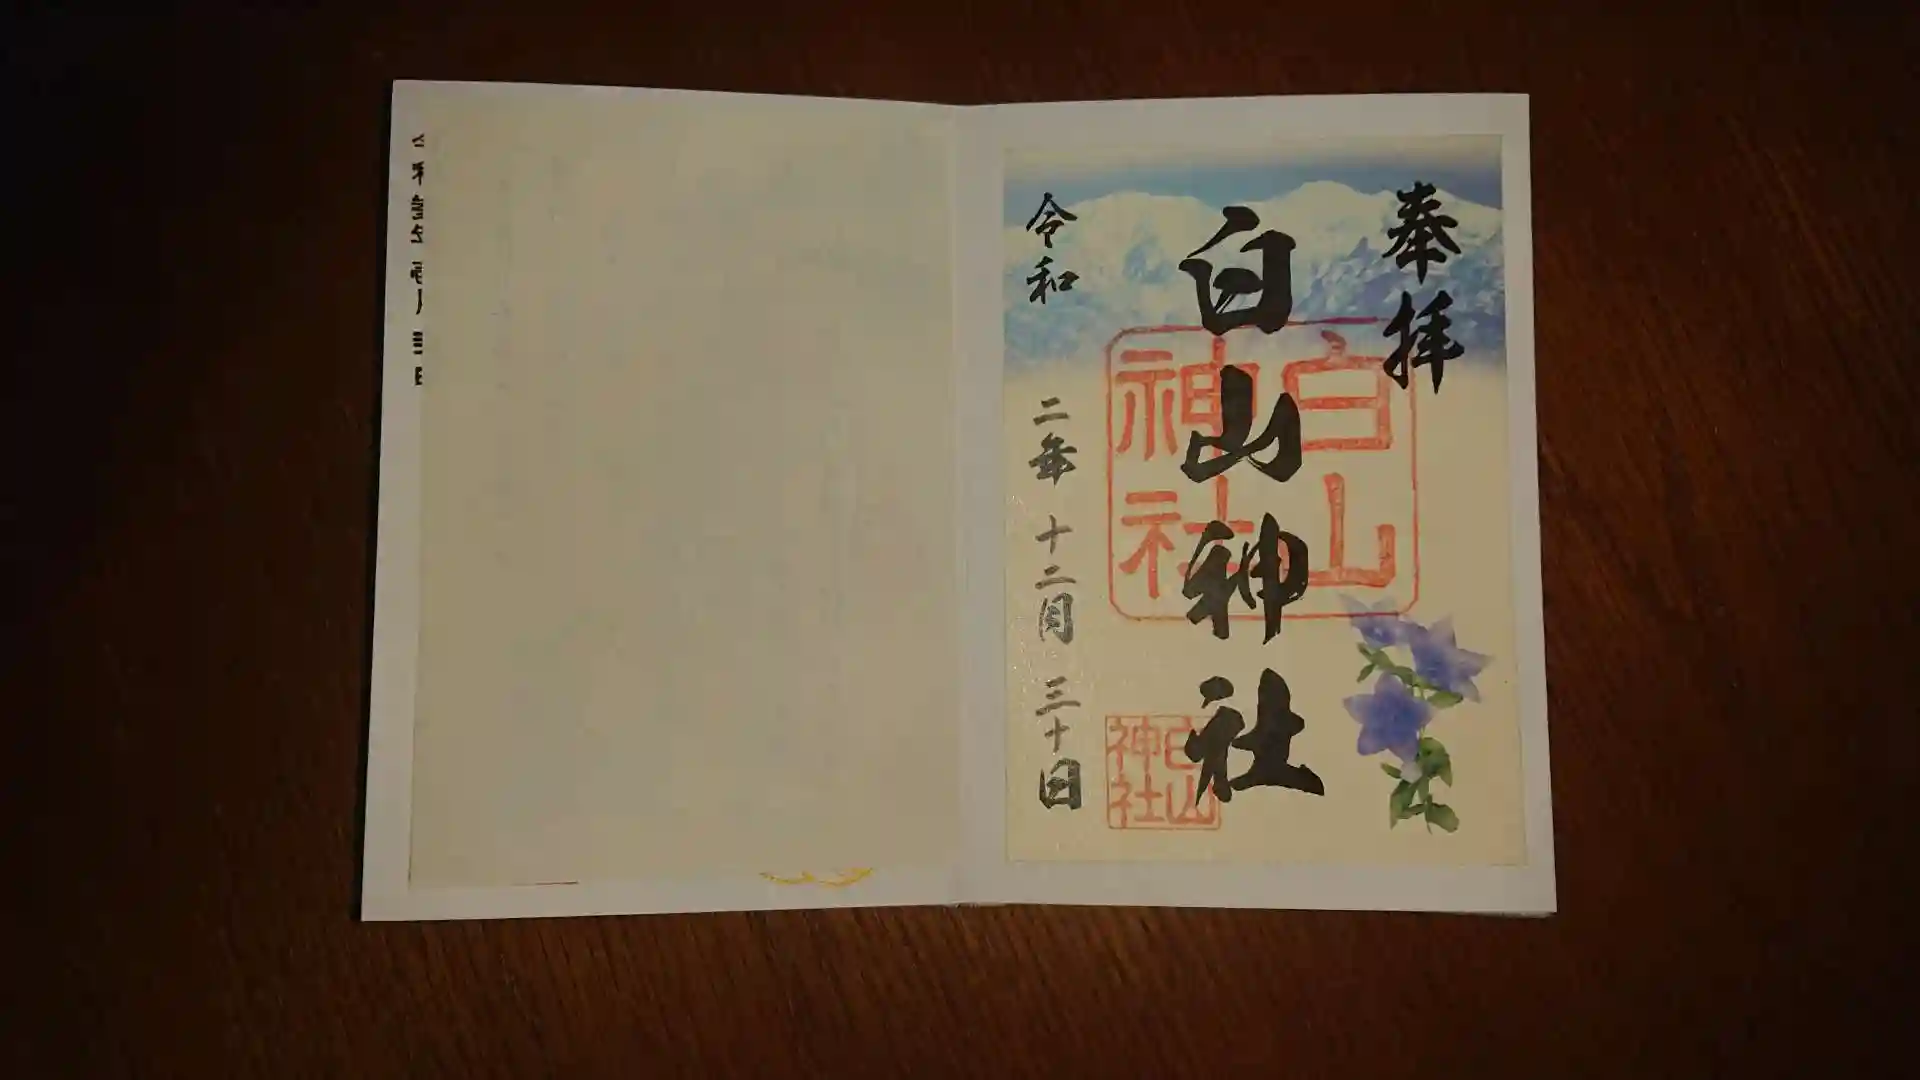 奉拝
白山神社
白山神社
白山神社
令和二年十二月三十日